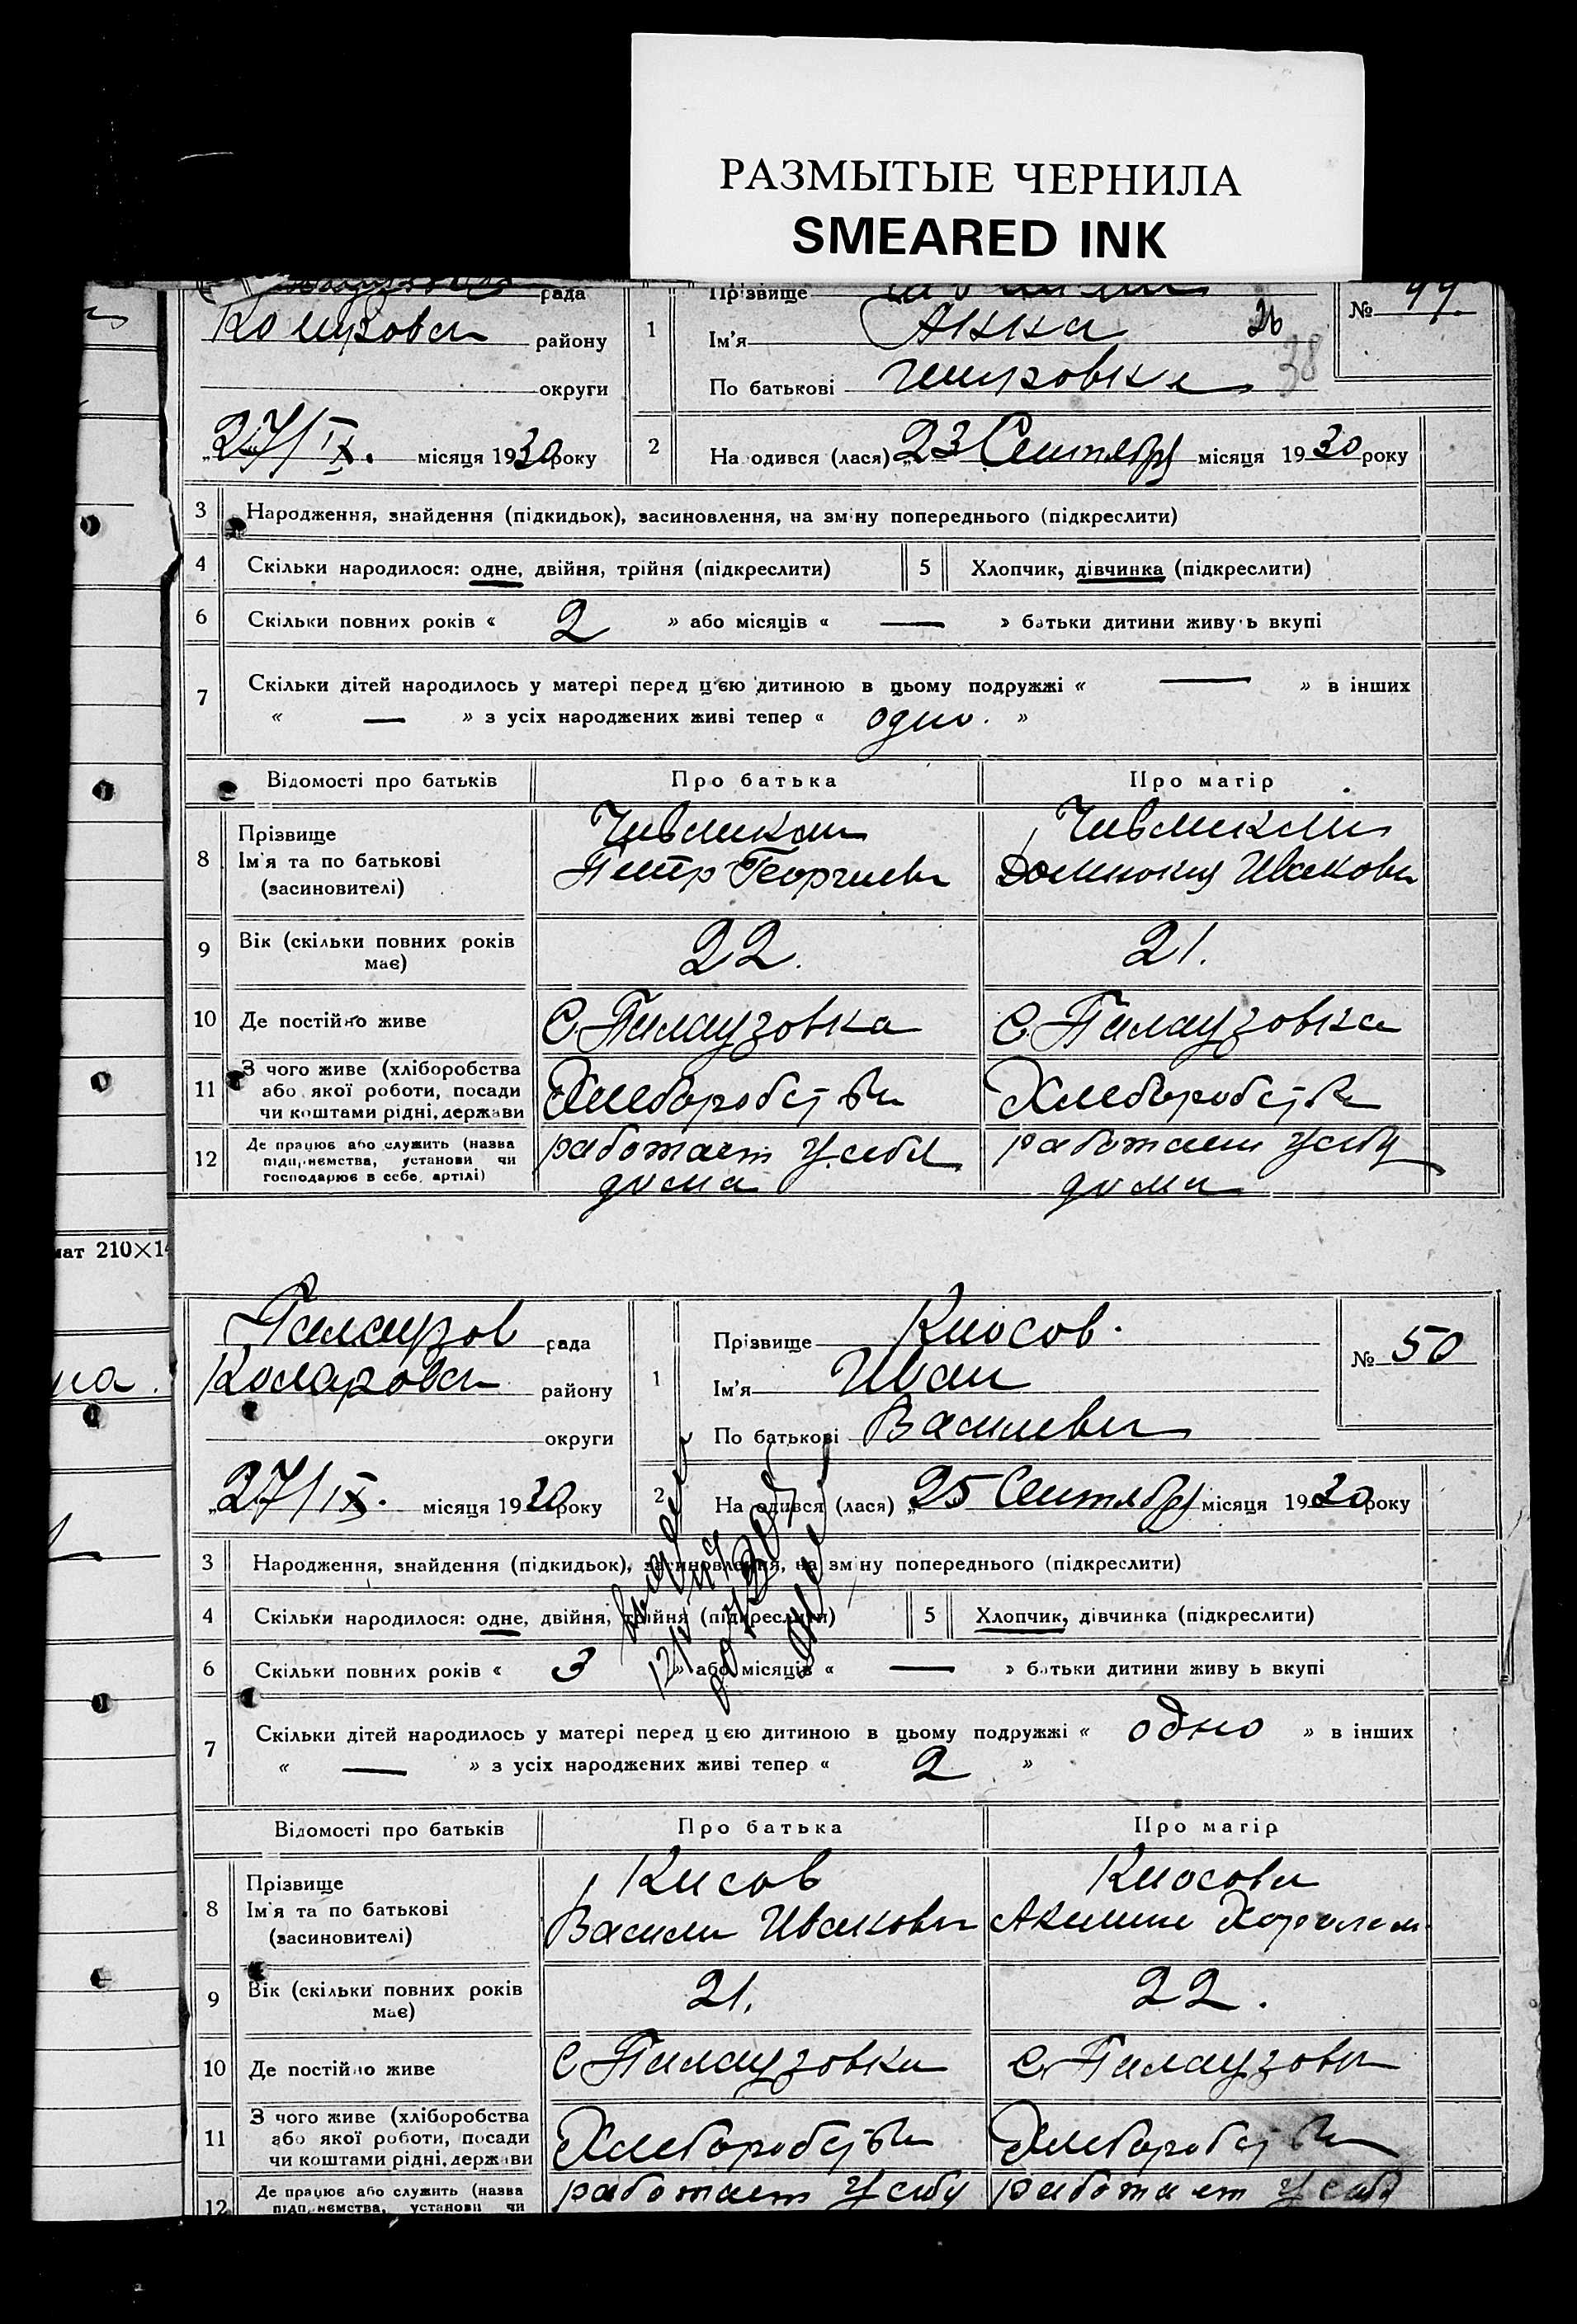 РАЗМЫТЫЕ ЧЕРНИЛА
SMEARED INK
рада
района району
Прізвище
№ 49.
1
Ім'я Анна
26
38
По батькові Петровна
округи
27/IX. місяця 1930 року
2
На одився (лася) „23 Сентября місяця 1930 року
3 Народження, знайдення (підкидьок), засиновлення, на зміну попереднього (підкреслити)
4 Скільки народилося: одне, двійня, трійня (підкреслити) 5 Хлопчик, дівчинка (підкреслити)
6 Скільки повних років « 2 » або місяців « — » батьки дитини живуть вкупі
7 Скільки дітей народилось у матері перед цією дитиною в цьому подружжі « — » в інших
« — » з усіх народжених живі тепер « одно. »
Відомості про батьків Про батька Про матір
8 Прізвище
Ім'я та по батькові
(засиновителі)
Петр Георгиеви
Домникия Иванови
9 Вік (скільки повних років має) 22. 21.
10 Де постійно живе С. Палаузовка С. Палаузовка
11 З чого живе (хліборобства
або якої роботи, посади
чи коштами рідні, держави
Хлеборобства Хлеборобства
12 Де працює або служить (назва
підприємства, установи чи
господарює в себе, артілі)
работает у себя работает у себя
дома дома
мат 210×14
на.
Палаузов рада
Коларовск району
округи
27/IX. місяця 1930 року
1
Прізвище Киосов.
Ім'я Иван
По батькові Василеви
№ 50
2
На одився (лася) „25 Сентября місяця 1930 року
3 Народження, знайдення (підкидьок), засиновлення, на зміну попереднього (підкреслити)
4 Скільки народилося: одне, двійня, трійня (підкреслити) 5 Хлопчик, дівчинка (підкреслити)
6 Скільки повних років « 3 » або місяців « — » батьки дитини живу ь вкупі
7 Скільки дітей народилось у матері перед цією дитиною в цьому подружжі « одно » в інших
« — » з усіх народжених живі тепер « 2 »
Відомості про батьків Про батька Про матір
8 Прізвище
Ім'я та по батькові
(засиновителі)
Кисов Киосова
Васили Иванови Акилина Харалам.
9 Вік (скільки повних років має) 21. 22.
10 Де постійно живе С Палаузовка С. Палаузовк
11 З чого живе (хліборобства
або якої роботи, посади
чи коштами рідні, держави
Хлеборобства Хлеборобства
12 Де працює або служить (назва
підприємства, установи чи
работает у себя работает у себя